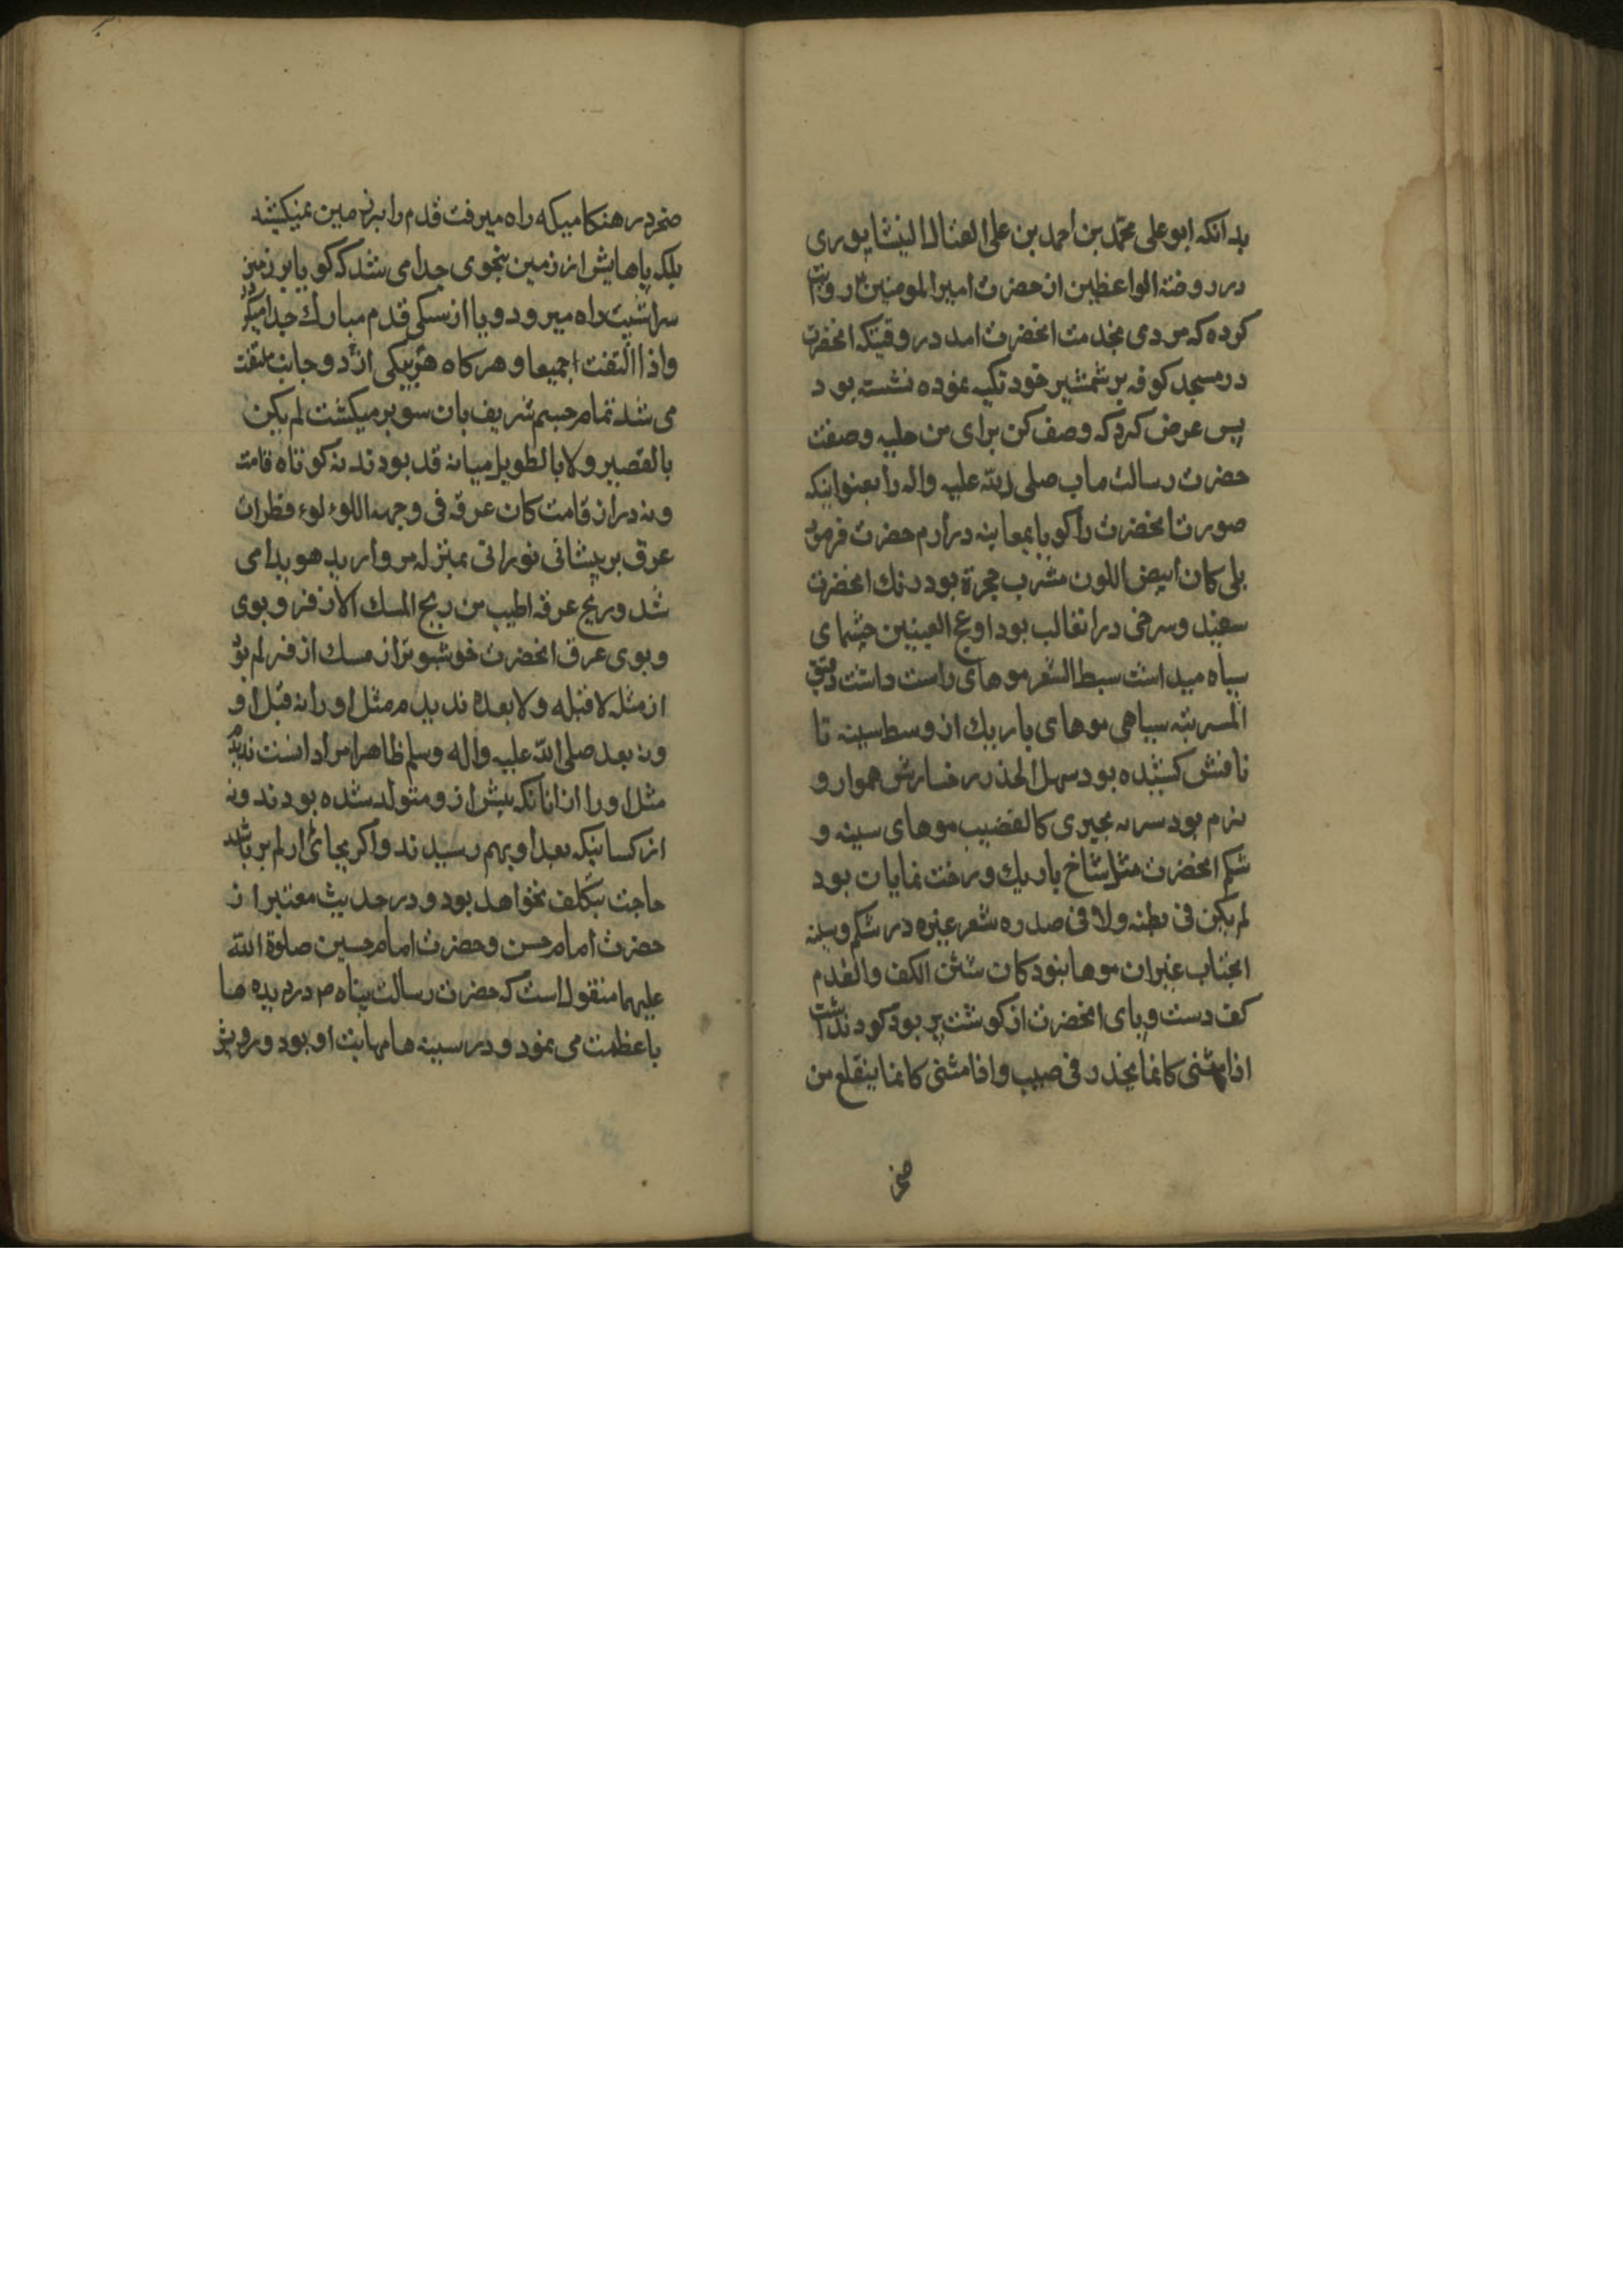 بدانکه ابو علی محمد بن احمد بن علی الفتال النیشاپوری
در روضة الواعظین از حضرت امیر المومنین ۴ روایت
کرده که مردی بخدمت انحضرت امد در وقتیکه انحضرت
در مسجد کوفه بر شمشیر خود تکیه نموده نشسته بود
پس عرض کرد که وصف کن برای من حلیه وصفت
حضرت رسالت ماب صلی الله علیه واله را بعنوانیکه
صورت انحضرت را کویا بمعاینه درارم حضرت فرمود
بلی کان ابیض اللون مشرب حمرة بود رنک انحضرت
سفید وسرخی در ان غالب بود ادعج العینین چشمای
سیاه میداشت سبط الشعر موهای راست داشت دقیق
المسربته سیاهی موهای باریک از وسط سینه تا
نافش کشیده بود سهل الخد رخسارش هموار و
نرم بود سربه یجری کالقضیب موهای سینه و
شکم انحضرت مثل شاخ باریک درخت نمایان بود
لم یکن فی بطنه ولا فی صدره شعر غیره در شکم وسینه
انجناب غیر ان موها نبود کان شثن الکف والقدم
کف دست وپای انحضرت از کوشت پر بود کود نداشت
اذا مشی کانما ینحدر فی صبب واذا مشی کانما ینقلع من
صخر
صخر در هنکامیکه راه میرفت قدم را بر زمین نمیکشید
بلکه پاهایش از زمین بنحوی جدا می شد که کویا بر زمین
سراشیب راه میرود ویا از سنکی قدم مبارک جدا میکرد
واذا التفت جمیعا وهرکاه بیکی از دو جانب ملتفت
می شد تمام جسم شریف بان سو برمیکشت لم یکن
بالقصیر ولا بالطویل میانه قد بودند نه کوتاه قامت
ونه دراز قامت کان عرقه فی وجهه اللوءلوء قطرات
عرق بر پیشانی نورانی بمنزله مروارید هویدا می
شد وریح عرقه اطیب من ریح المسک الاذفر وبوی
وبوی عرق انحضرت خوشبوتر از مسک اذفر لم یر
از مثله لا قبله ولا بعده ندیدم مثل او را نه قبل او
ونه بعد صلی الله علیه واله وسلم ظاهرا مراد انست ندیدم
مثل او را از انانکه پیش از و متولد شده بودند ونه
از کسانیکه بعد او بهم رسیدند واکر بجای ار لم یر باشد
حاجت بتکلف نخواهد بود ودر حدیث معتبر از
حضرت امام حسن وحضرت امام حسین صلوة الله
علیهما منقول است که حضرت رسالت پناه ۴ در دیده ها
باعظمت می نمود و در سینه ها مهابت او بود ورویش